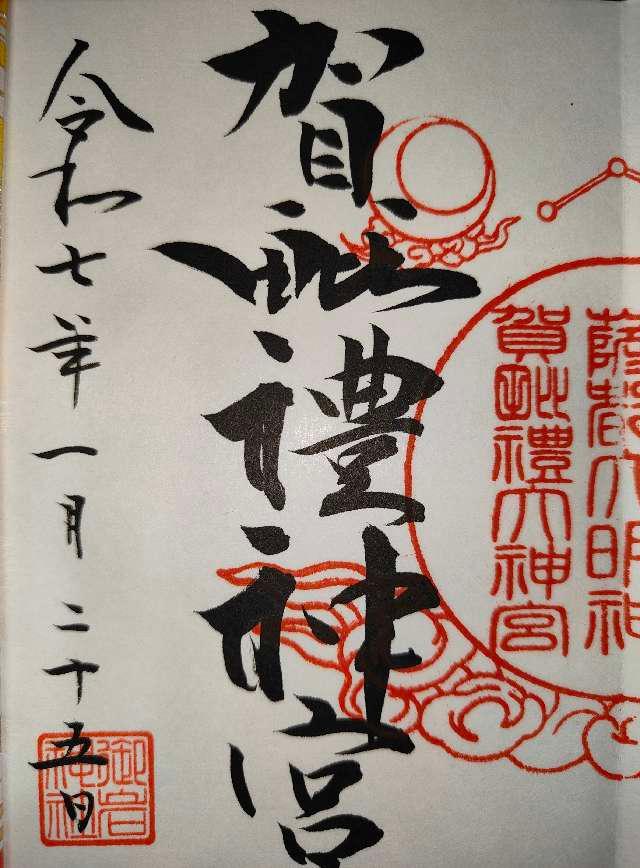 薩都大明神
賀毗禮大神宮
賀毗禮神宮
令和七年一月二十五日
御岩
神社